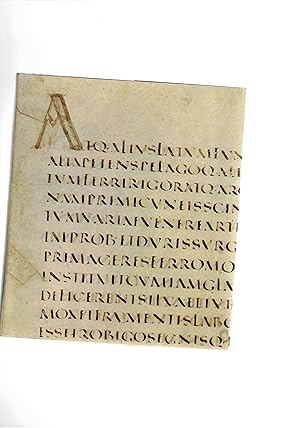 ATQ·ALIVSLATVMFVN
ALTAPETENSPELAGOQ·ALI
TVMFERRIRIGORATQ·AR
NAMPRIMICVNEISSCIN
TVMVARIAEVENEREARTE
IMPROBETDVRISSVRG
PRIMACERESFERROMO
INSTITVITCVMIAMGLA
DEFICERENTSILVAEETVI
MOXETFRVMENTISLABO
ESSETROBIGOSEGNISQ